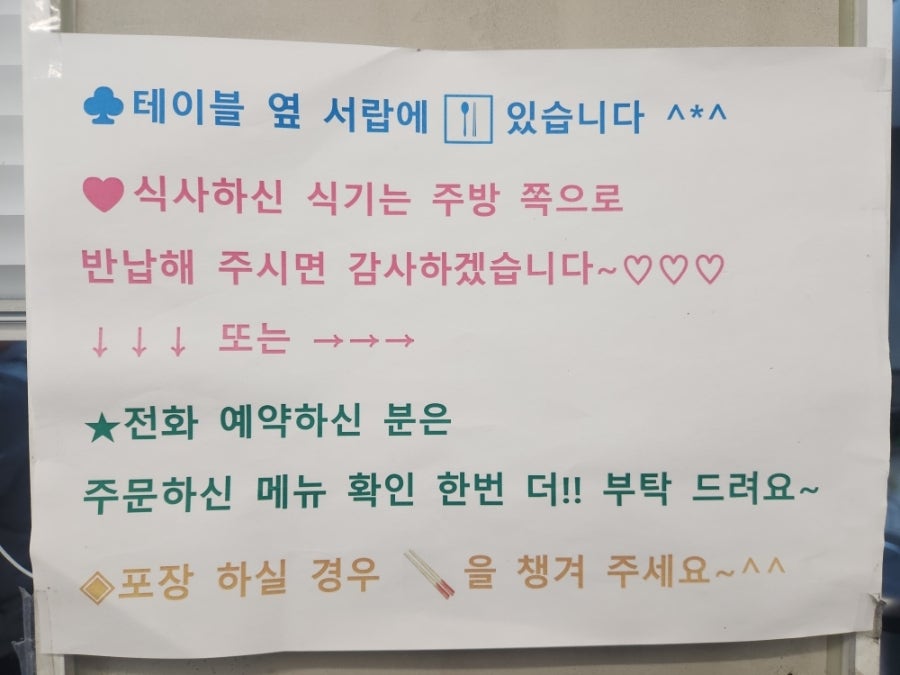 ♣테이블 옆 서랍에 🍴 있습니다 ^*^
♥식사하신 식기는 주방 쪽으로
반납해 주시면 감사하겠습니다~♡♡♡
↓↓↓ 또는 →→→
★전화 예약하신 분은
주문하신 메뉴 확인 한번 더!! 부탁 드려요~
◈포장 하실 경우 🥢을 챙겨 주세요~^^